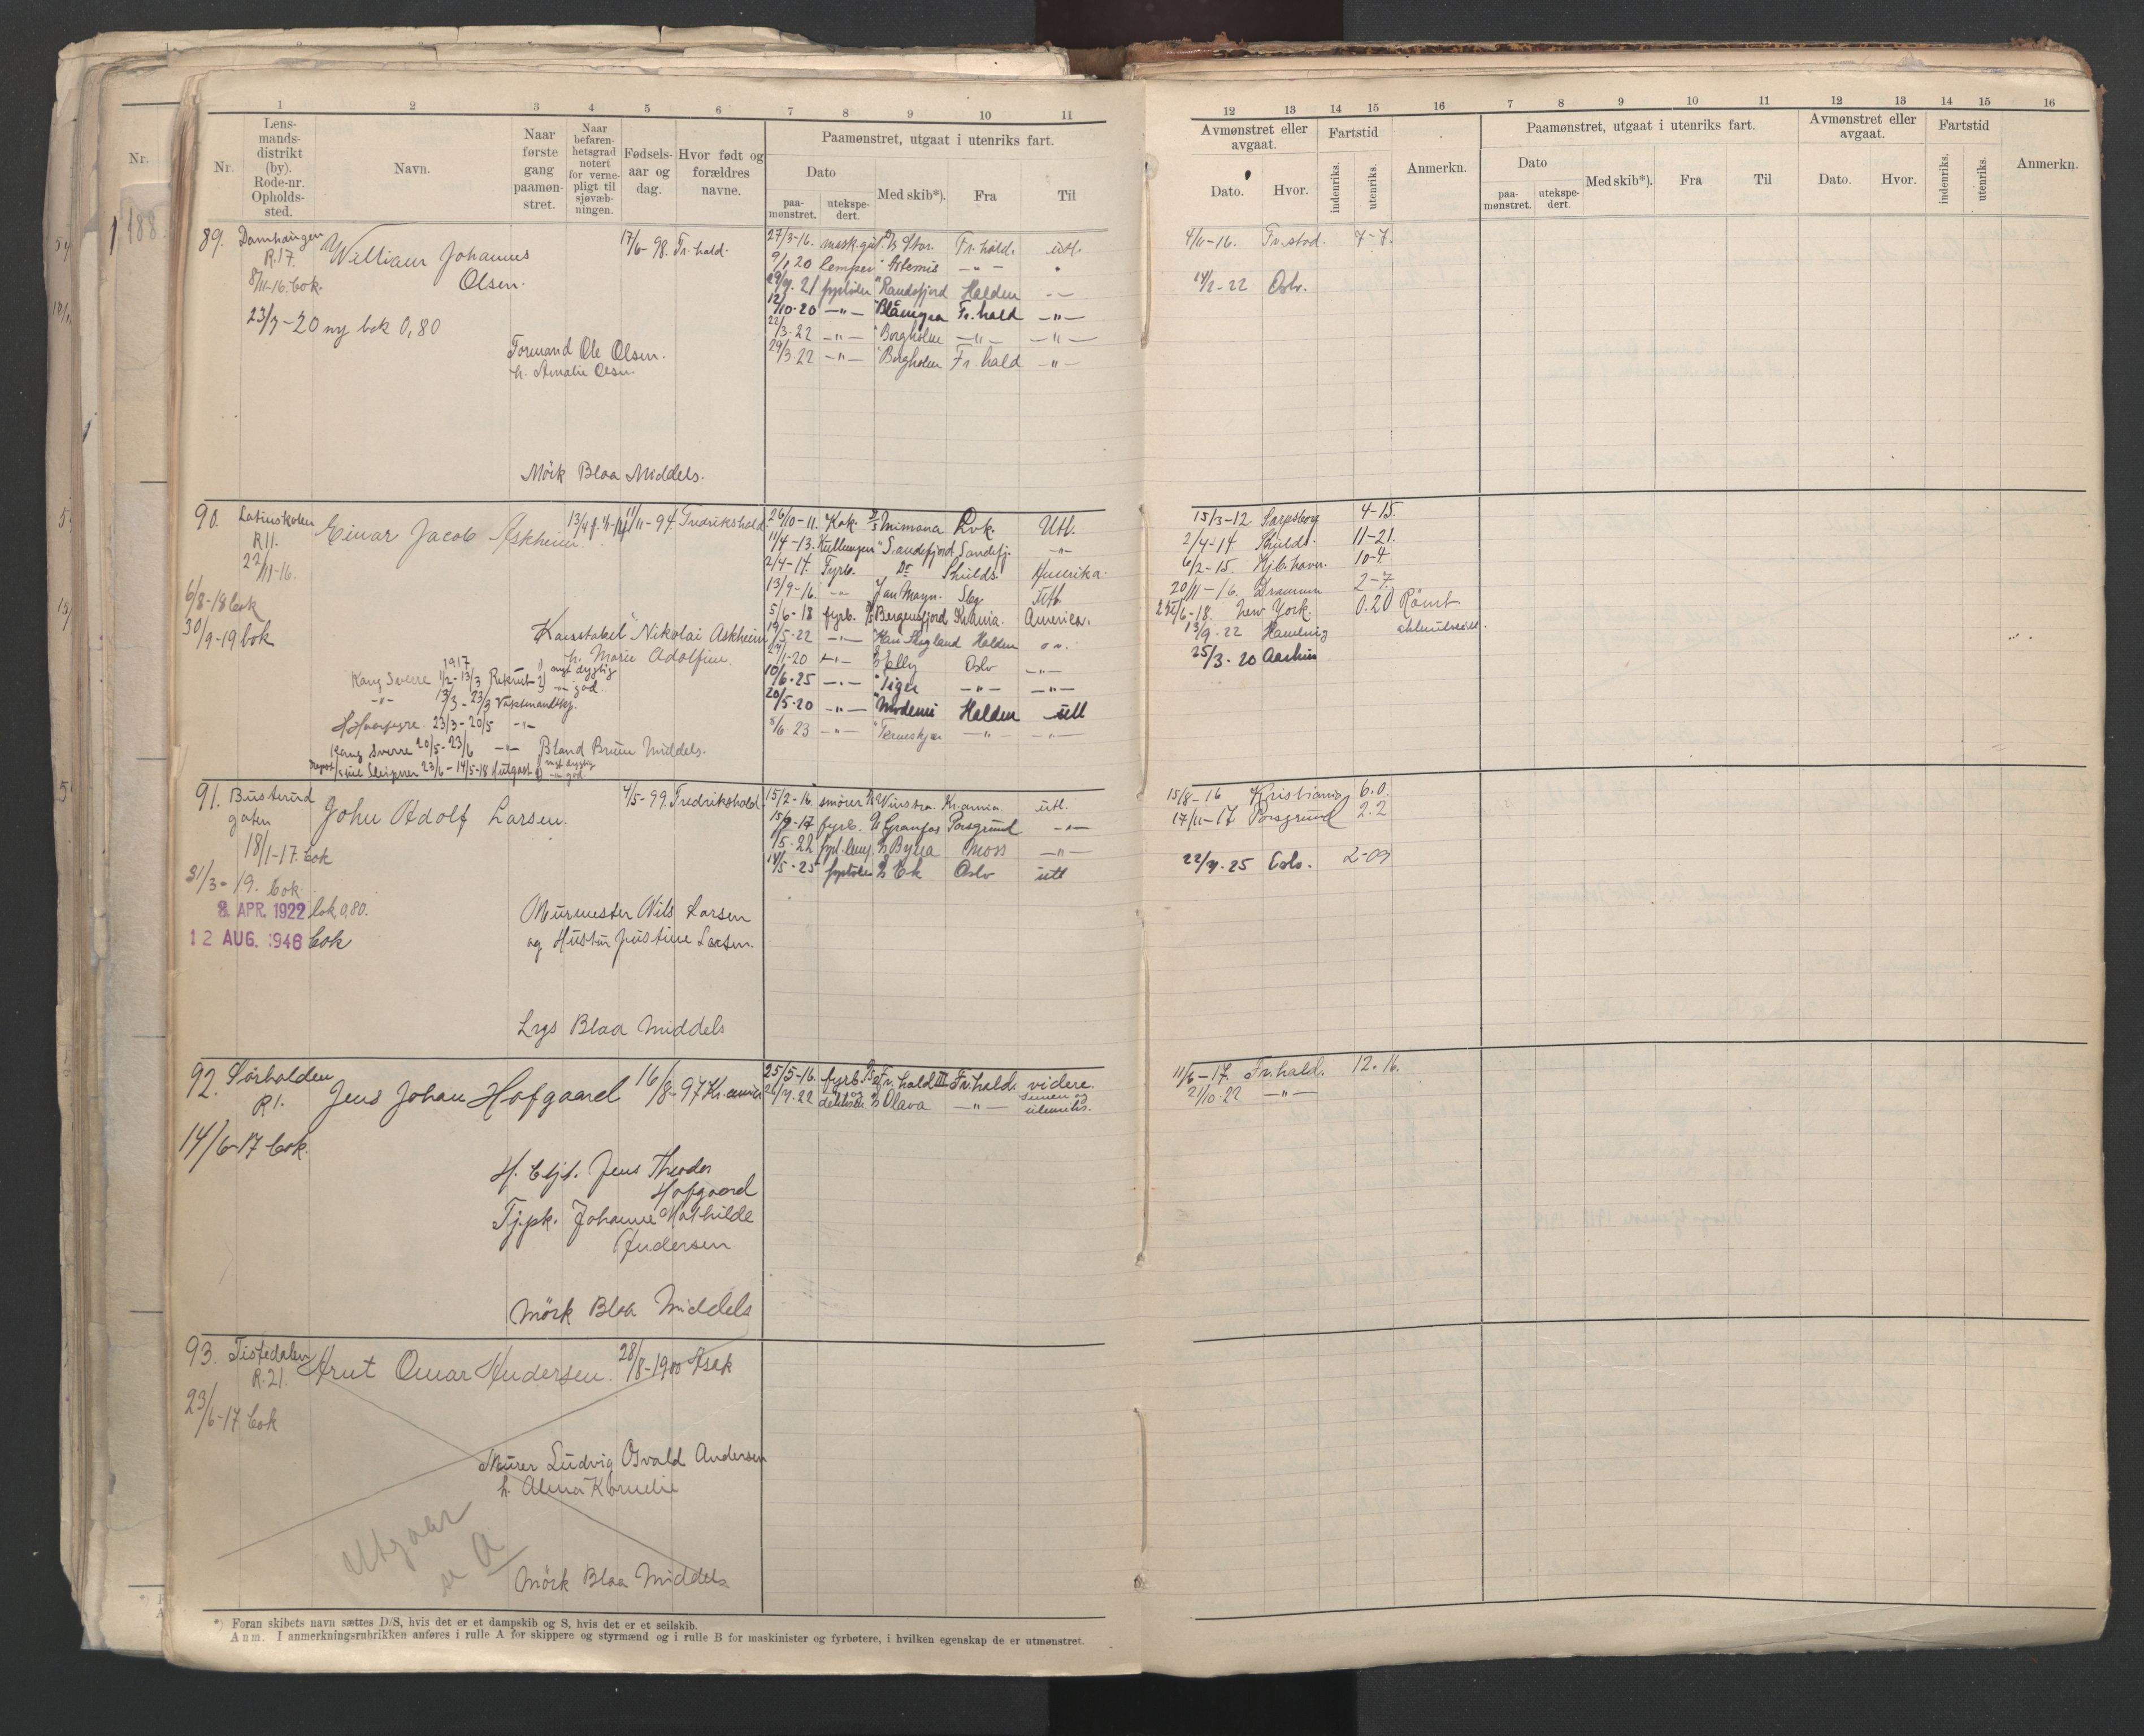 1 2 3 4 5 6 7 8 9 10 11
Nr.
Lens-
mands-
distrikt
(by).
Rode-nr.
Opholds-
sted.
Navn.
Naar
første
gang
paamøn-
stret.
Naar
befaren-
hetsgrad
notert
for verne-
pligt til
sjøvæb-
ningen.
Fødsels-
aar og
dag.
Hvor født og
forældres
navne.
Paamønstret, utgaat i utenriks fart.
Dato
paa-
mønstret.
utekspe-
dert.
Med skib*).
Fra
Til
89. Damhaugen William Johannes 17/6-98. Fr.hald.
R.17.
Olsen.
8/11-16. bok.
23/7-20 ny bok 0,80
Formand Ole Olsen.
h. Amalie Olsen.
Mörk Blaa Middels.
27/3-16. D/S Stor. Fr.hald. utl.
9/1 20 lemper " Artemis —"—
29/9. 21 fyrböter " Randsfjord Halden
12/10-20 —"— Fr.hald —"—
22/3-22 —"— " Borgholm —"— —"—
29/3-22 —"— " Borgholm Fr.hald —"—
90. Latinskolen Einar Jacob Askheim 11/11-94. Fredrikshald.
R11.
22/11-16.
6/8-18 bok
30/9-19 bok
Konstabel Nikolai Askheim
h. Marie Adolfine.
1917
Kong Sverre 1/2-13/3 Rekrut meget dygtig
—"— 13/3-23/3 god.
23/3-20/5 —"—
Kong Sverre 20/5-23/6 —"— Bland Brune Middels.
Sleipner 23/6-14/5-18
26/10-11. Kok. D/S Mimona Lvk. Utl.
11/4-13. " Sandefjord Sandefj. —"—
2/4-14. Fyrb. Do Shields. Amerika.
13/9-16. Jan Mayn. Sbg. Utl.
5/6-18 fyrb. D/S Bergensfjord Krania. America.
19/5-22 —"— Halden
—"— Elly Oslo —"—
10/6-25 —"— " Tiger —"— —"—
20/5-20 —"— " Modemi Halden utl
5/6.23 —"— " Terneskjær —"— —"—
91. Busterud John Adolf Larsen. 4/5-99. Fredrikshald.
gaten
18/1-17. bok
31/3-19. bok.
8. APR. 1922 bok 0,80.
12 AUG. 1946 bok
Murmester Nils Larsen
og Hustru Justine Larsen.
Lys Blaa Middels
15/2-16. smörer Kr.ania. utl.
fyrb. D/S Granfos Porsgrund —"—
Moss —"—
14/5-25 fyrböter D/S Ek Oslo utl
92. Sörhalden Jens Johan Hofgaard 16/8-97 Kr.ania
R1.
14/6-17 bok.
Jens Theodor
Hofgaard
Tj.pk. Johanne Mathilde
Andersen
Mörk Blaa Middels
25/5-16. fyrb. D/S Fr.hald III Fr.hald. videre.
D/S Olava —"—
93. Tistedalen Arnt Omar Andersen. 28/8-1900 Asak
R.21.
23/6-17 bok
Murer Ludvig Osvald Andersen
h. Alma Kornelie
Utgaar
se A
Mörk Blaa Middels
*) Foran skibets navn sættes D/S, hvis det er et dampskib og S, hvis det er et seilskib.
Anm. I anmerkningsrubrikken anføres i rulle A for skippere og styrmænd og i rulle B for maskinister og fyrbøtere, i hvilken egenskap de er utmønstret.
12 13 14 15 16 7 8 9 10 11 12 13 14 15 16
Avmønstret eller
avgaat.
Dato.
Hvor.
Fartstid
indenriks.
utenriks.
Anmerkn.
Paamønstret, utgaat i utenriks fart.
Dato
paa-
mønstret.
utekspe-
dert.
Med skib*).
Fra
Til
Avmønstret eller
avgaat.
Dato.
Hvor.
Fartstid
indenriks.
utenriks.
Anmerkn.
4/11-16. Fr.stad. 7-7.
14/2-22 Oslo.
15/3-12 Sarpsborg 4-15.
2/4-14. Shields. 11-21.
6/2-15. Kjb.havn. 10-4.
20/11-16. Drammen 2-7.
New York. 0.20 Römt
13/9.22 Hamburg
25/3-20 Aarhus
15/8-16 Kristiania 6.0.
17/11-17 Porsgrund 2.2
22/7.25 Oslo. 2-09
11/6-17. Fr.hald. 12.16.
21/10-22 —"—
Nr.
188